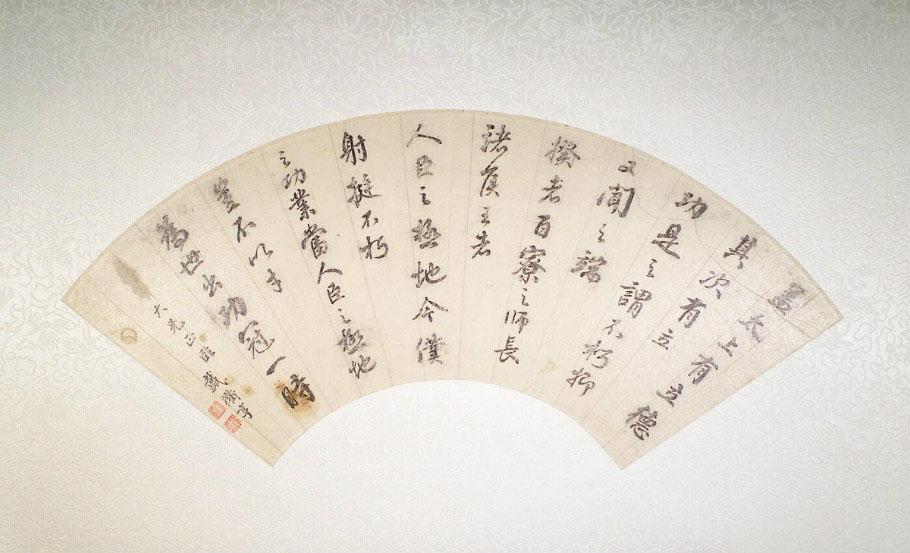 蓋太上有立德
其次有立
功是之謂不朽抑
又聞之端
揆者百寮之師長
諸侯王者
人臣之極地今僕
射挺不朽
之功業當人臣之極地
豈不以才
為世出功冠一時
戴衢亨